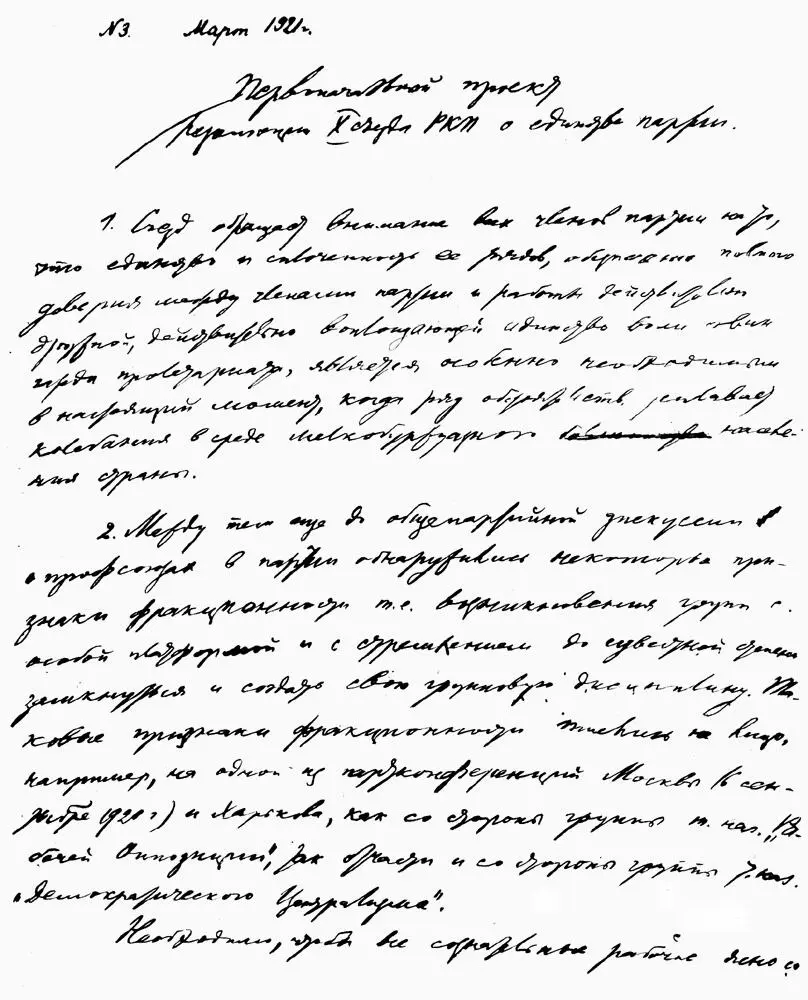 N3. Март 1921 г.
Первоначальной проект
Резолюции X съезда РКП о единстве партии.
1. Съезд обращает внимание всех членов партии на то,
что единство и сплоченность ее рядов, обеспечение полного
доверия между членами партии и работы действительно
дружной, действительно воплощающей единство воли аван-
гарда пролетариата, является особенно необходимым
в настоящий момент, когда ряд обстоятельств усиливает
колебания в среде мелкобуржуазного населе-
ния страны.
2. Между тем еще до общепартийной дискуссии
о профсоюзах в партии обнаружились некоторые при-
знаки фракционности т.е. возникновения групп с
особой платформой и с стремлением до известной степени
замкнуться и создать свою групповую дисциплину. Та-
ковые признаки фракционности имелись на лицо,
например, на одной из партконференций Москвы (в сен-
тябре 1920 г) и Харькова, как со стороны группы т. наз. „Ра-
бочей Оппозиции", так отчасти и со стороны группы т. наз.
„Демократического Централизма".
Необходимо, чтобы все сознательные рабочие ясно со